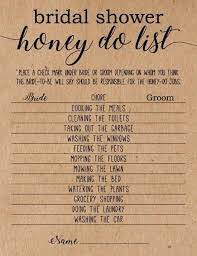 bridal shower
honey do list
*PLACE A CHECK MARK UNDER BRIDE OR GROOM DEPENDING ON WHOM YOU THINK
THE BRIDE-TO-BE WILL SAY SHOULD BE RESPONSIBLE FOR THE HONEY-DO JOBS.
Bride CHORE Groom
COOKING THE MEALS
CLEANING THE TOILETS
TAKING OUT THE GARBAGE
WASHING THE WINDOWS
FEEDING THE PETS
MOPPING THE FLOORS
MOWING THE LAWN
MAKING THE BED
WATERING THE PLANTS
GROCERY SHOPPING
DOING THE LAUNDRY
WASHING THE CAR
Name